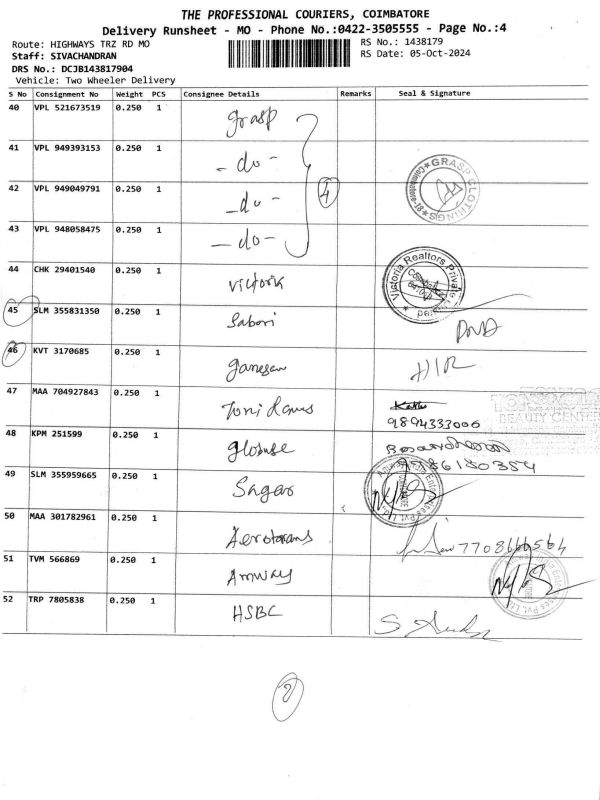 THE PROFESSIONAL COURIERS, COIMBATORE
Delivery Runsheet - MO - Phone No.:0422-3505555 - Page No.:4
Route: HIGHWAYS TRZ RD MO
RS No.: 1438179
Staff: SIVACHANDRAN
RS Date: 05-Oct-2024
DRS No.: DCJB143817904
Vehicle: Two Wheeler Delivery
S No Consignment No Weight PCS Consignee Details Remarks Seal & Signature
40 VPL 521673519 0.250 1 grasp
41 VPL 949393153 0.250 1 - do -
42 VPL 949049791 0.250 1 - do - 4 GRASP CLOTHINGS
43 VPL 948058475 0.250 1 - do -
44 CHK 29401540 0.250 1 victoria Victoria Realtors Private
45 SLM 355831350 0.250 1 Sabari
46 KVT 3170685 0.250 1 ganesan
47 MAA 704927843 0.250 1 9894333006 BEAUTY CENTER
48 KPM 251599 0.250 1
49 SLM 355959665 0.250 1 Sagar
50 MAA 301782961 0.250 1 Aerotrans
51 TVM 566869 0.250 1 Amway
52 TRP 7805838 0.250 1 HSBC